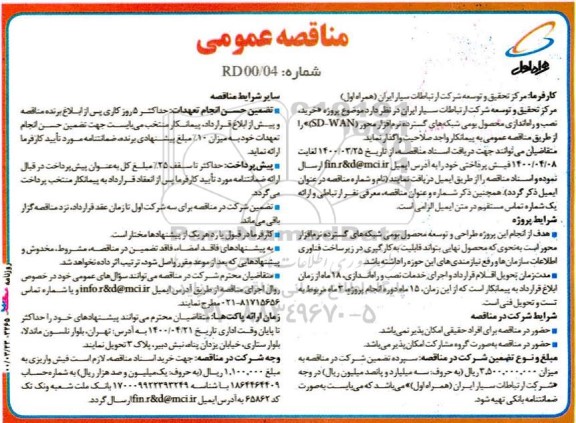 مناقصه عمومی
شماره: RD00/04
همراه اول
کارفرما: مرکز تحقیق و توسعه شرکت ارتباطات سیار ایران (همراه اول)
مرکز تحقیق و توسعه شرکت ارتباطات سیار ایران در نظر دارد موضوع پروژه «خرید،
نصب و راه‌اندازی محصول بومی شبکه‌های گسترده نرم‌افزار محور (SD-WAN)» را
از طریق مناقصه عمومی به پیمانکار واجد صلاحیت واگذار نماید.
متقاضیان می‌توانند جهت دریافت اسناد مناقصه از تاریخ ۱۴۰۰/۰۳/۲۵ لغایت
۱۴۰۰/۰۴/۰۸ فیش پرداختی خود را به آدرس ایمیل fin.r&d@mci.ir ارسال
نموده و اسناد مناقصه را از طریق ایمیل دریافت نمایند (نام و شماره مناقصه در عنوان
ایمیل ذکر گردد) همچنین ذکر شماره و عنوان مناقصه، معرفی نفر ارتباطی و ارائه
یک شماره تماس مستقیم در متن ایمیل الزامی است.
شرایط پروژه
هدف از انجام این پروژه طراحی و توسعه محصول بومی شبکه‌های گسترده نرم‌افزار
محور است به‌نحوی که محصول نهایی بتواند قابلیت به کارگیری در زیرساخت فناوری
اطلاعات سازمان‌ها و رفع نیازمندی های این حوزه را داشته باشد.
مدت‌زمان تحویل اقلام قرارداد و اجرای خدمات نصب و راه‌اندازی، ۱۸ ماه از زمان
ابلاغ قرارداد به پیمانکار است که از این زمان، ۱۵ ماه دوره انجام پروژه و ۳ ماه مربوط به
تست و تحویل فنی است.
شرایط شرکت در مناقصه
حضور در مناقصه برای افراد حقیقی امکان پذیر نمی‌باشد.
حضور در مناقصه به‌صورت گروه مشارکت امکان پذیر می‌باشد.
مبلغ و نوع تضمین شرکت در مناقصه: سپرده تضمین شرکت در مناقصه به
میزان ۳,۵۰۰,۰۰۰,۰۰۰ ریال (به حروف: سه میلیارد و پانصد میلیون ریال) در وجه
«شرکت ارتباطات سیار ایران (همراه اول)» می‌باشد که می‌بایست به‌صورت
ضمانتنامه بانکی تهیه شود.
سایر شرایط مناقصه
تضمین حسن انجام تعهدات: حداکثر ۵ روز کاری پس از ابلاغ برنده مناقصه
و پیش از ابلاغ قرارداد، پیمانکار منتخب می‌بایست جهت تضمین حسن انجام
تعهدات خود به میزان ۱۰٪ مبلغ پیشنهادی برنده، ضمانتنامه مورد تأیید کارفرما
ارائه نماید.
پیش پرداخت: حداکثر تا سقف ۲۵٪ مبلغ کل به‌عنوان پیش‌پرداخت در قبال
ارائه ضمانتنامه مورد تأیید کارفرما پس از انعقاد قرارداد به پیمانکار منتخب پرداخت
می‌گردد.
تضمین شرکت در مناقصه برای سه شرکت اول تا زمان عقد قرارداد، نزد مناقصه گزار
باقی می‌ماند.
کارفرما در قبول یا رد هر یک از پیشنهادها مختار است.
به پیشنهادهای فاقد امضاء، فاقد تضمین در مناقصه، مشروط، مخدوش و
پیشنهادهایی که بعد از موعد مقرر واصل شود، ترتیب اثر داده نخواهد شد.
متقاضیان محترم شرکت در مناقصه می‌توانند سؤال‌های عمومی خود در خصوص
روال اجرای مناقصه از طریق آدرس ایمیل info.r&d@mci.ir و یا شماره تماس
۰۲۱-۸۱۷۱۵۶۵۶ مطرح نمایند.
زمان ارائه پاکت‌ها: متقاضیان محترم می توانند پیشنهادهای خود را حداکثر
تا پایان وقت اداری تاریخ ۱۴۰۰/۰۴/۲۱ به آدرس: تهران، بلوار نلسون ماندلا،
بلوار ستاری، خیابان یزدان پناه، نبش دبیر، پلاک ۳ تحویل نمایند.
وجه شرکت در مناقصه: جهت خرید اسناد مناقصه، لازم است فیش واریزی به
مبلغ ۱,۱۰۰,۰۰۰ ریال (به حروف: یک‌میلیون و صد هزار ریال) به شماره حساب
۱۸۶۴۴۶۴۴۰۹ با شناسه ۱۷۰۰۰۹۹۲۲۳۹۳۲۴۹ بانک ملت شعبه ونک تک
کد ۶۵۸۶۲ به آدرس ایمیل fin.r&d@mci.ir ارسال گردد.